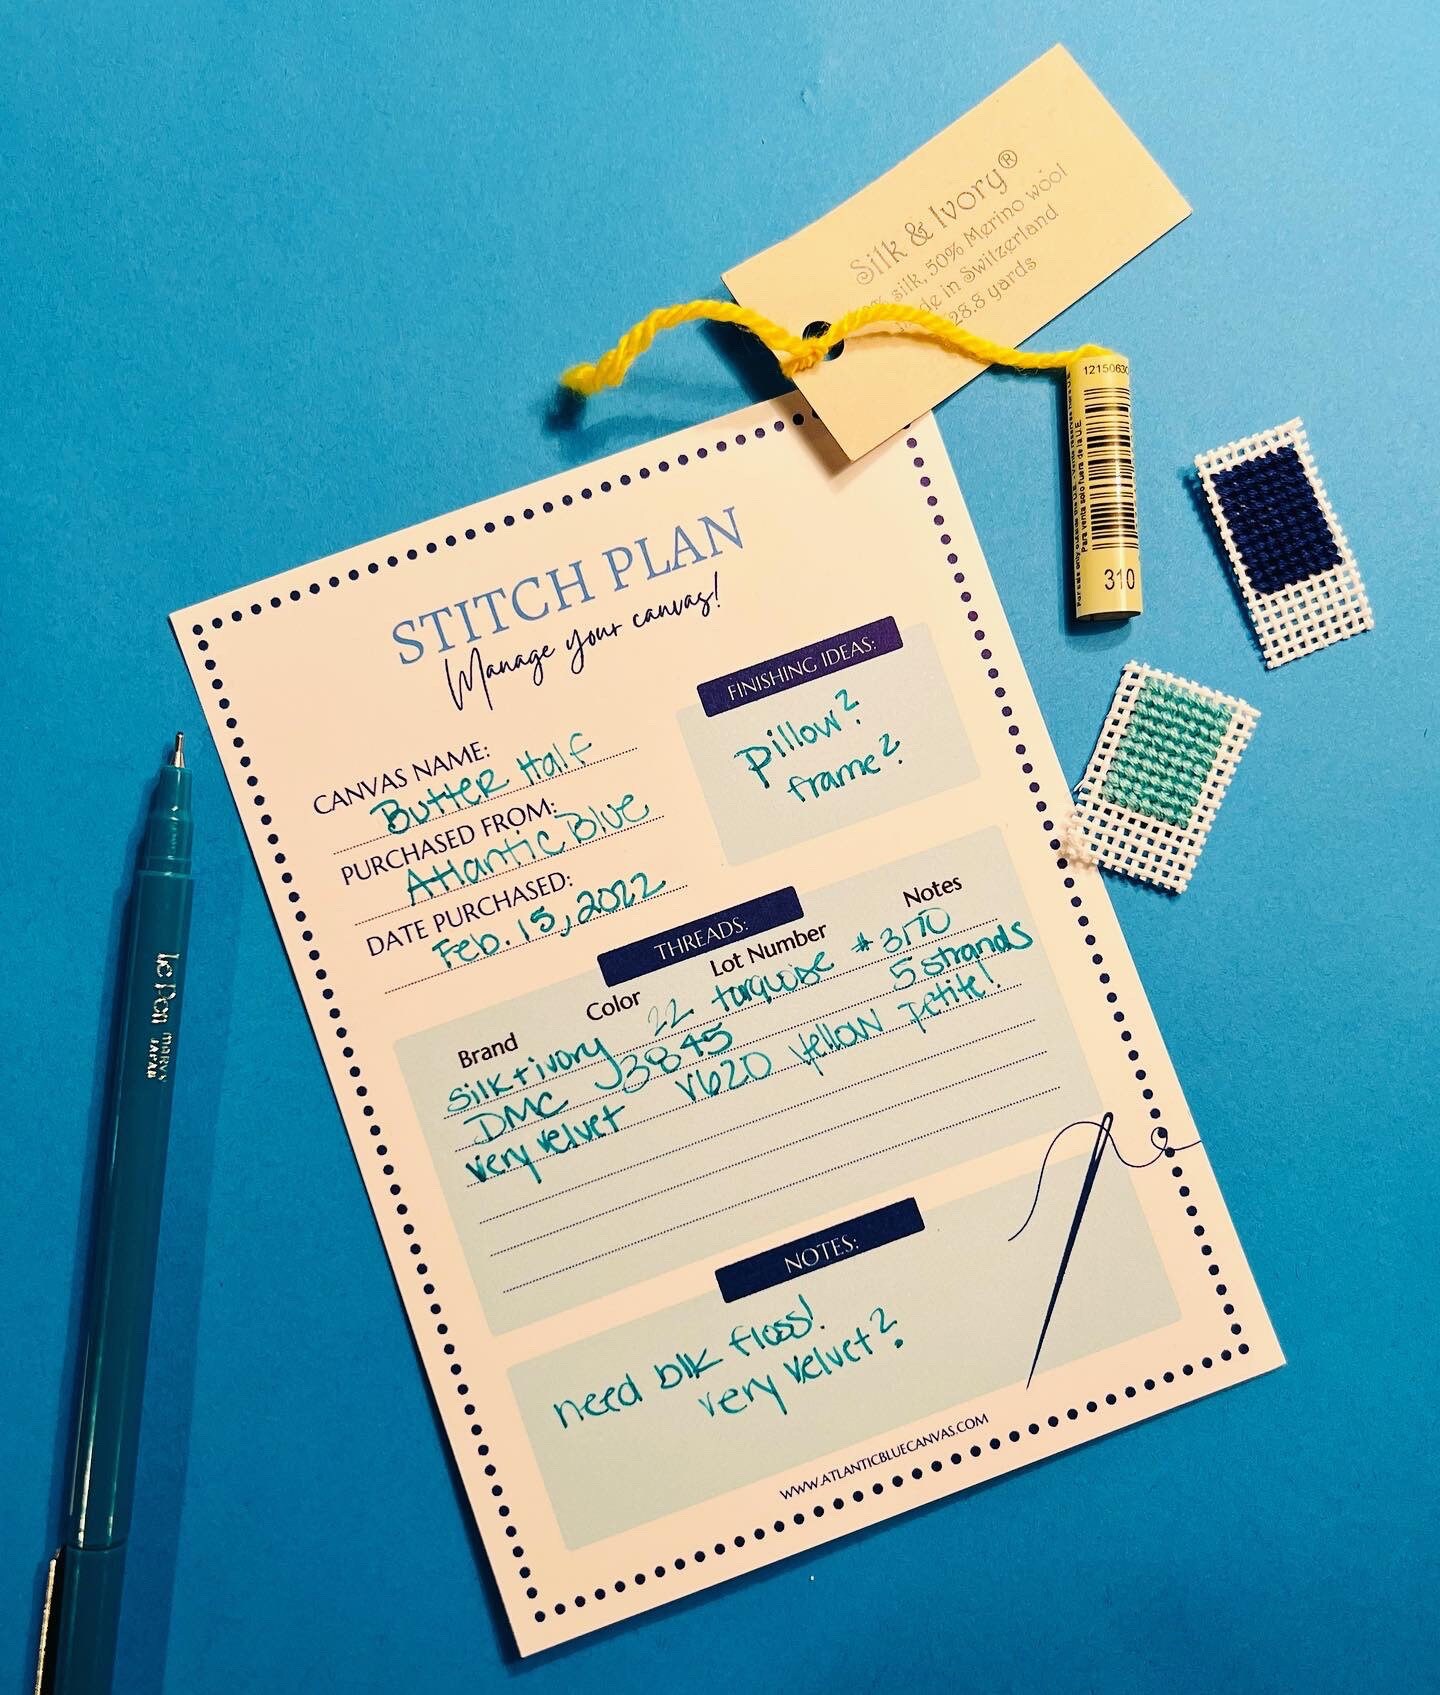 Silk & Ivory®
silk, 50% Merino wool
in Switzerland
28.8 yards
1215063
Para venta solo fuera de la U.E.
310
STITCH PLAN
Manage your canvas!
FINISHING IDEAS:
Pillow?
frame?
CANVAS NAME:
Butter Half
PURCHASED FROM:
Atlantic Blue
DATE PURCHASED:
Feb. 15, 2022
THREADS:
Brand Color Lot Number Notes
silk + ivory 22 turquoise #3170
DMC 3845 5 strands
very velvet V620 yellow petite!
NOTES:
need blk floss!
very velvet?
WWW.ATLANTICBLUECANVAS.COM
le Pen MARVY
JAPAN